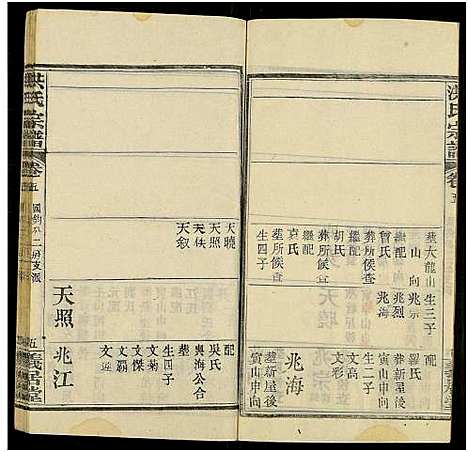 洪氏宗譜
卷五
墓大龍山
山向
生三子
兆宗
兆烈
兆海
曾氏
繼配
葬所候查
胡氏
繼配
葬所候查
袁氏
墓所候查
生四子
配
羅氏
葬新屋後
寅山申向
生二子
文高
文彩
兆海
墓新屋後
寅山申向
天曉
天佚
天照
天叙
配
吳氏
輿海公合
墓
生四子
文菊
文傑
文霸
文遊
天照
兆江
洪氏宗譜
卷五
五
義居堂